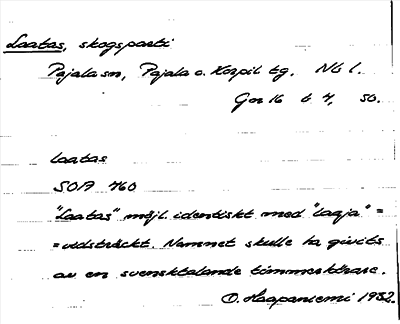 Laatas, skogsparti
Pajala sn, Pajala o. Korpil tg. Nb l.
Ger 16 b 4, 50.
laatas
SOA 460
"Laatas" möjl. identiskt med "laaja" =
= vidsträckt. Namnet skulle ha givits
av en svensktalande timmerkörare.
O. Haapaniemi 1982.